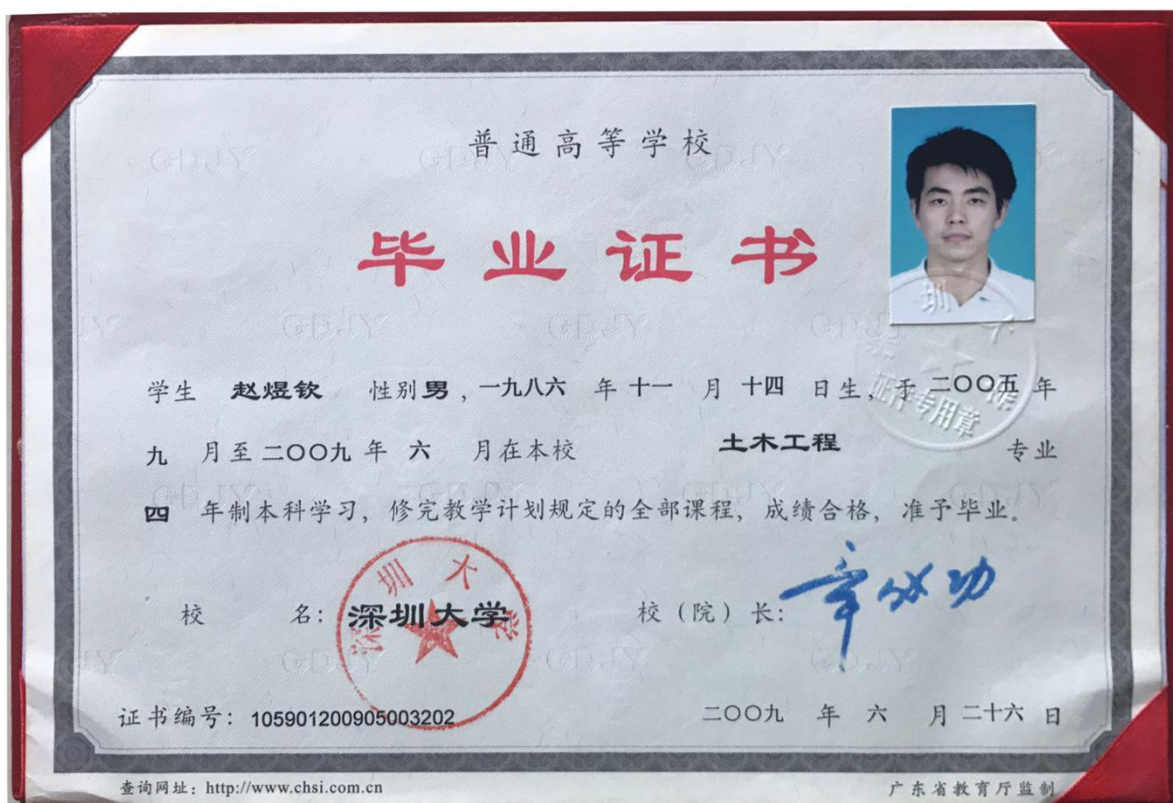 普通高等学校
毕业证书
学生 赵煜钦 性别男，一九八六 年 十一 月 十四 日生，于 二〇〇五 年
九 月至 二〇〇九 年 六 月在本校 土木工程 专业
四 年制本科学习，修完教学计划规定的全部课程，成绩合格，准予毕业。
校 名：深圳大学 校（院）长：章必功
深圳大学
证书编号：105901200905003202 二〇〇九 年 六 月 二十六 日
查询网址：http://www.chsi.com.cn 广东省教育厅监制
证件专用章